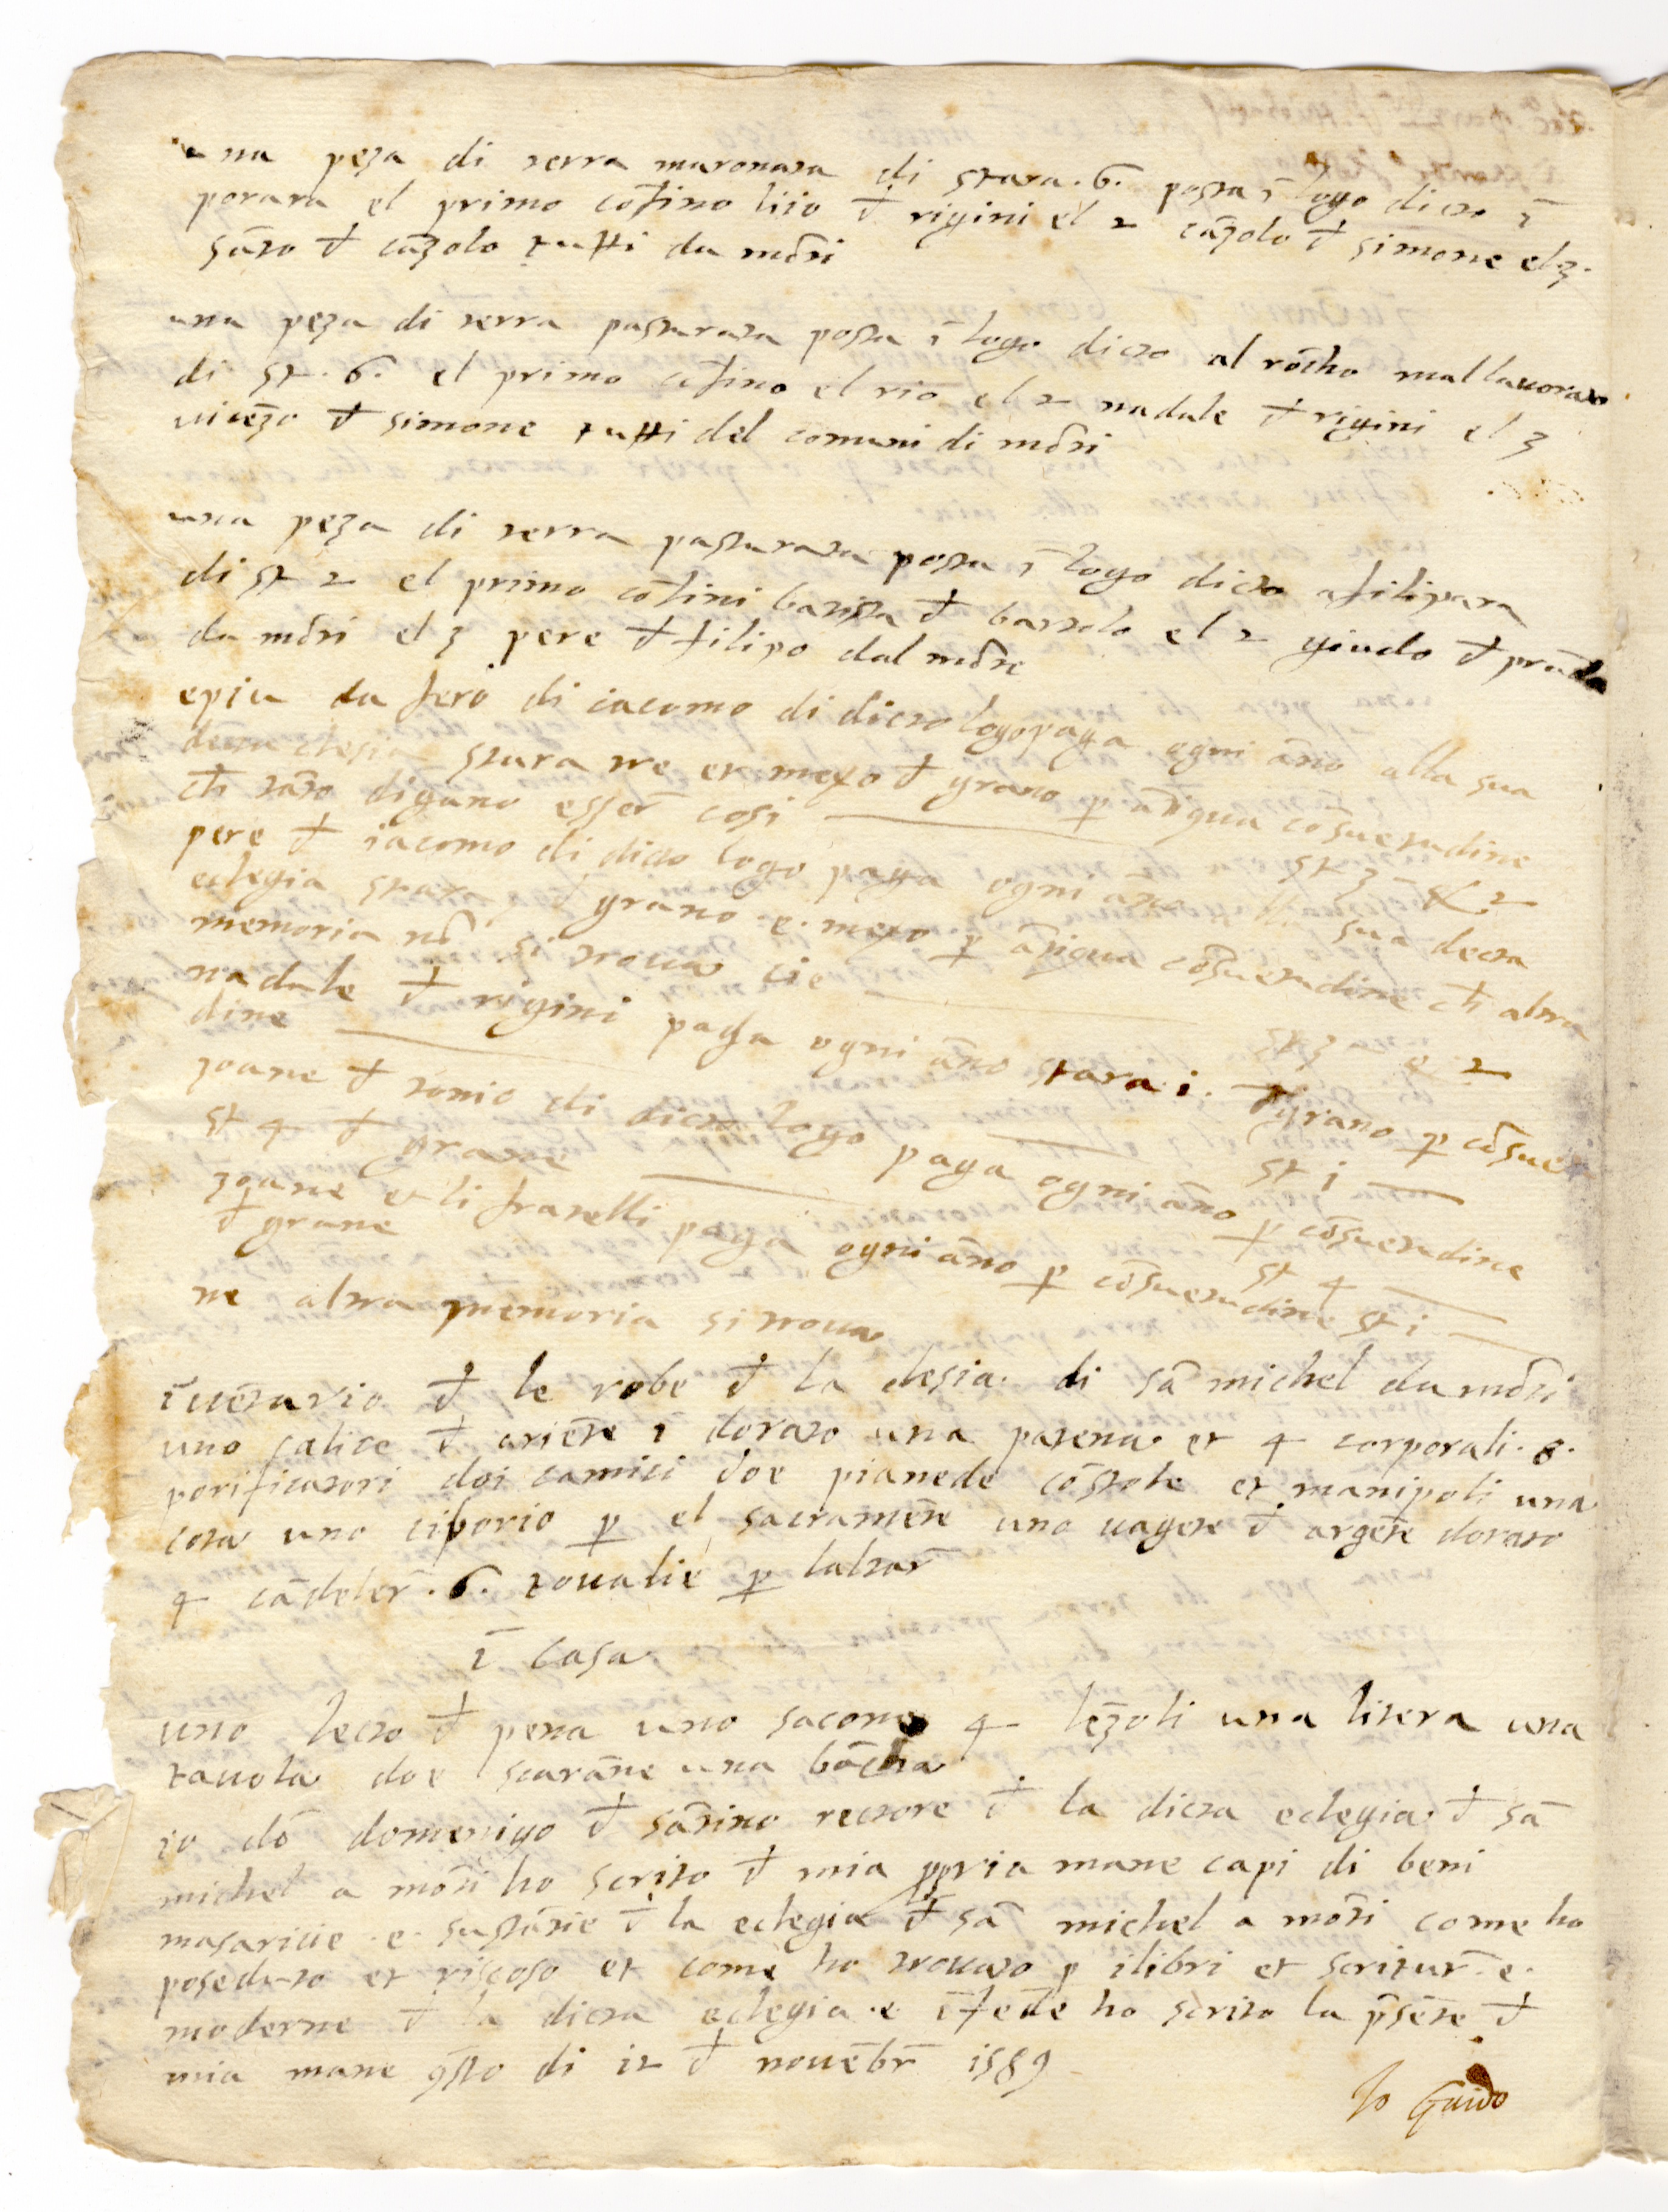 una peza di terra maronata di stara .6. posta ī logo dicto ī
porara el primo cōfino liio đ rigini el 2 cāzolo đ simone el 3.
sāto đ cāzolo tutti da mōti
una peza di terra pasturata posta ī logo dicto al rōcho mal lauorato
di st. 6. el primo cōfino el rio el 2 nadale đ rigini el 3
uicēzo đ simone tutti del comuni di mōti
una peza di terra pasturata posta ī logo dicto a filipara
di st 2 el primo cōfini batista đ bartolo el 2 giudo đ
da mōti el 3 pere đ filipo dal mōte
epiu da fero di iacomo di dicto logo paga ogni āno alla sua
decta clesia stara tre et mezo đ grano p̄ ātiqua cōsuetudine
ch̄ tāto digano esser̄ cosi st 3 2
pere đ iacomo di dicto logo paga ogni āno alla sua decta
eclegia stara 3 đ grano .e. mezo p̄ ātiqua cōsuetudine ch̄ altra
memoria nō si troua cie st 3 2
nadale đ rigini paga ogni āno stara .i. đ grano p̄ cōsue
dine st i
zoane đ tonio di dicto logo paga ogni āno p̄ cōsuetudine
st 4 đ grane st 4
zoane et li fratelli paga ogni āno p̄ cōsuetudine st i
đ grane
ne altra memoria si troua
īuētario đ le robe đ la clesia di sā michel da mōti
uno calice đ ariēte ī dorato una patena et 4 corporali .8.
porificatori doi camici doe pianede cō stole et manipoli una
cota uno ciborio p̄ el sacramēte uno uagete đ argēte dorato
4 cādeler̄ .6. toualie p̄ laltar̄
ī casa
uno lecto đ pena uno sacone 4 lēzoli una litera una
tauola doe scarāne una bācha
io dō domenigo đ sātino rectore đ la dicta eclegia đ sā
michel a mōti ho scrito đ mia ppria mane capi di beni
masaricie .e. sustātie đ la eclegia đ sā michel a mōti come ho
poseduto et riscoso et come ho trouato p̄ i libri et scritur̄ .e.
moderne đ la dicta eclegia .e. ī fede ho scrito la p̄sēte đ
mia mane q̄sto di 12 đ nouēbr̄ 1589
Io Guido